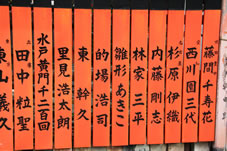 藤間千寿花
西川園三代
杉原伊織
内藤剛志
林家三平
雛形あきこ
的場浩司
東幹久
里見浩太朗
水戸黄門千二百回
田中粒聖
東山義久